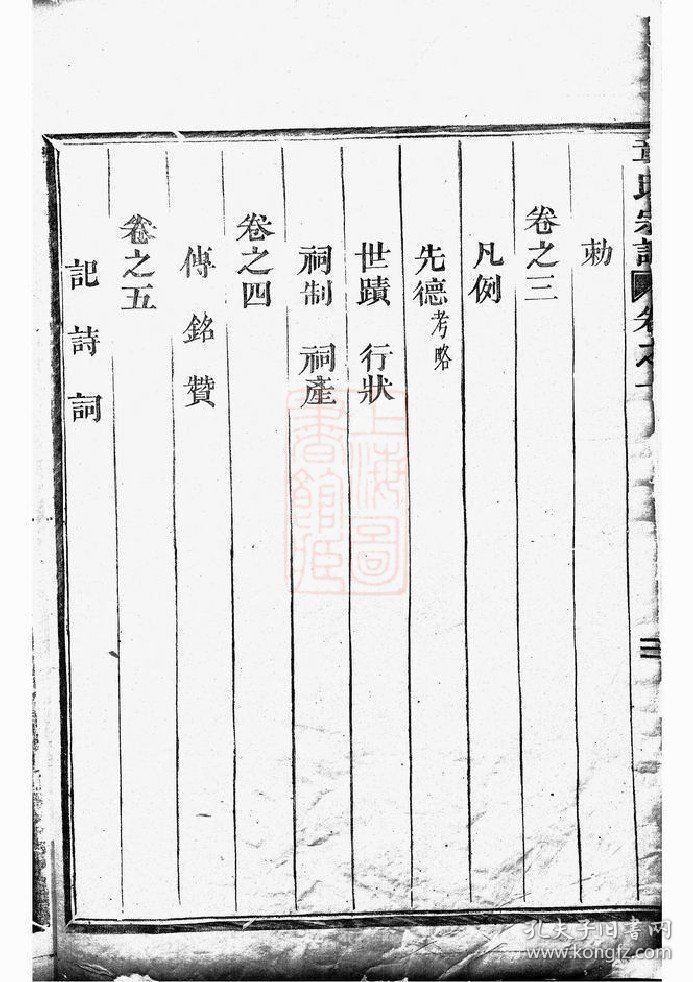 章氏宗譜
卷之一
二
勅
卷之三
凡例
先德考略
世蹟 行狀
祠制 祠產
卷之四
傳銘贊
卷之五
記詩詞
上海圖
書館藏
孔夫子旧书网
www.kongfz.com